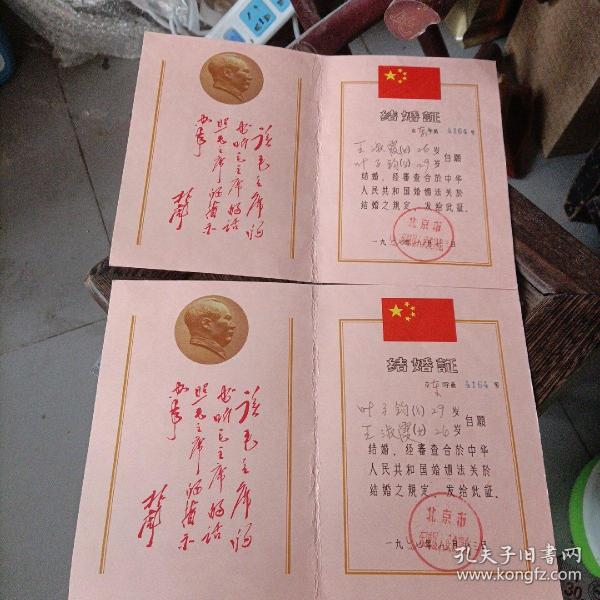 读毛主席的
书 听毛主席的话
照毛主席的指示
办事
林彪
结婚証
京东字第 4164 号
王淑霞(女)26岁
叶子钧(男)29岁 自願
結婚，经審查合於中华
人民共和国婚姻法关於
結婚之規定，发给此証。
北京市
一九
月
日
读毛主席的
书 听毛主席的话
照毛主席的指示
办事
林彪
结婚証
京东字第 4164 号
叶子钧(男)29岁
王淑霞(女)26岁 自願
結婚，经審查合於中华
人民共和国婚姻法关於
結婚之規定，发给此証。
北京市
一九
年
月
日
30
孔夫子旧书网
www.kongfz.com